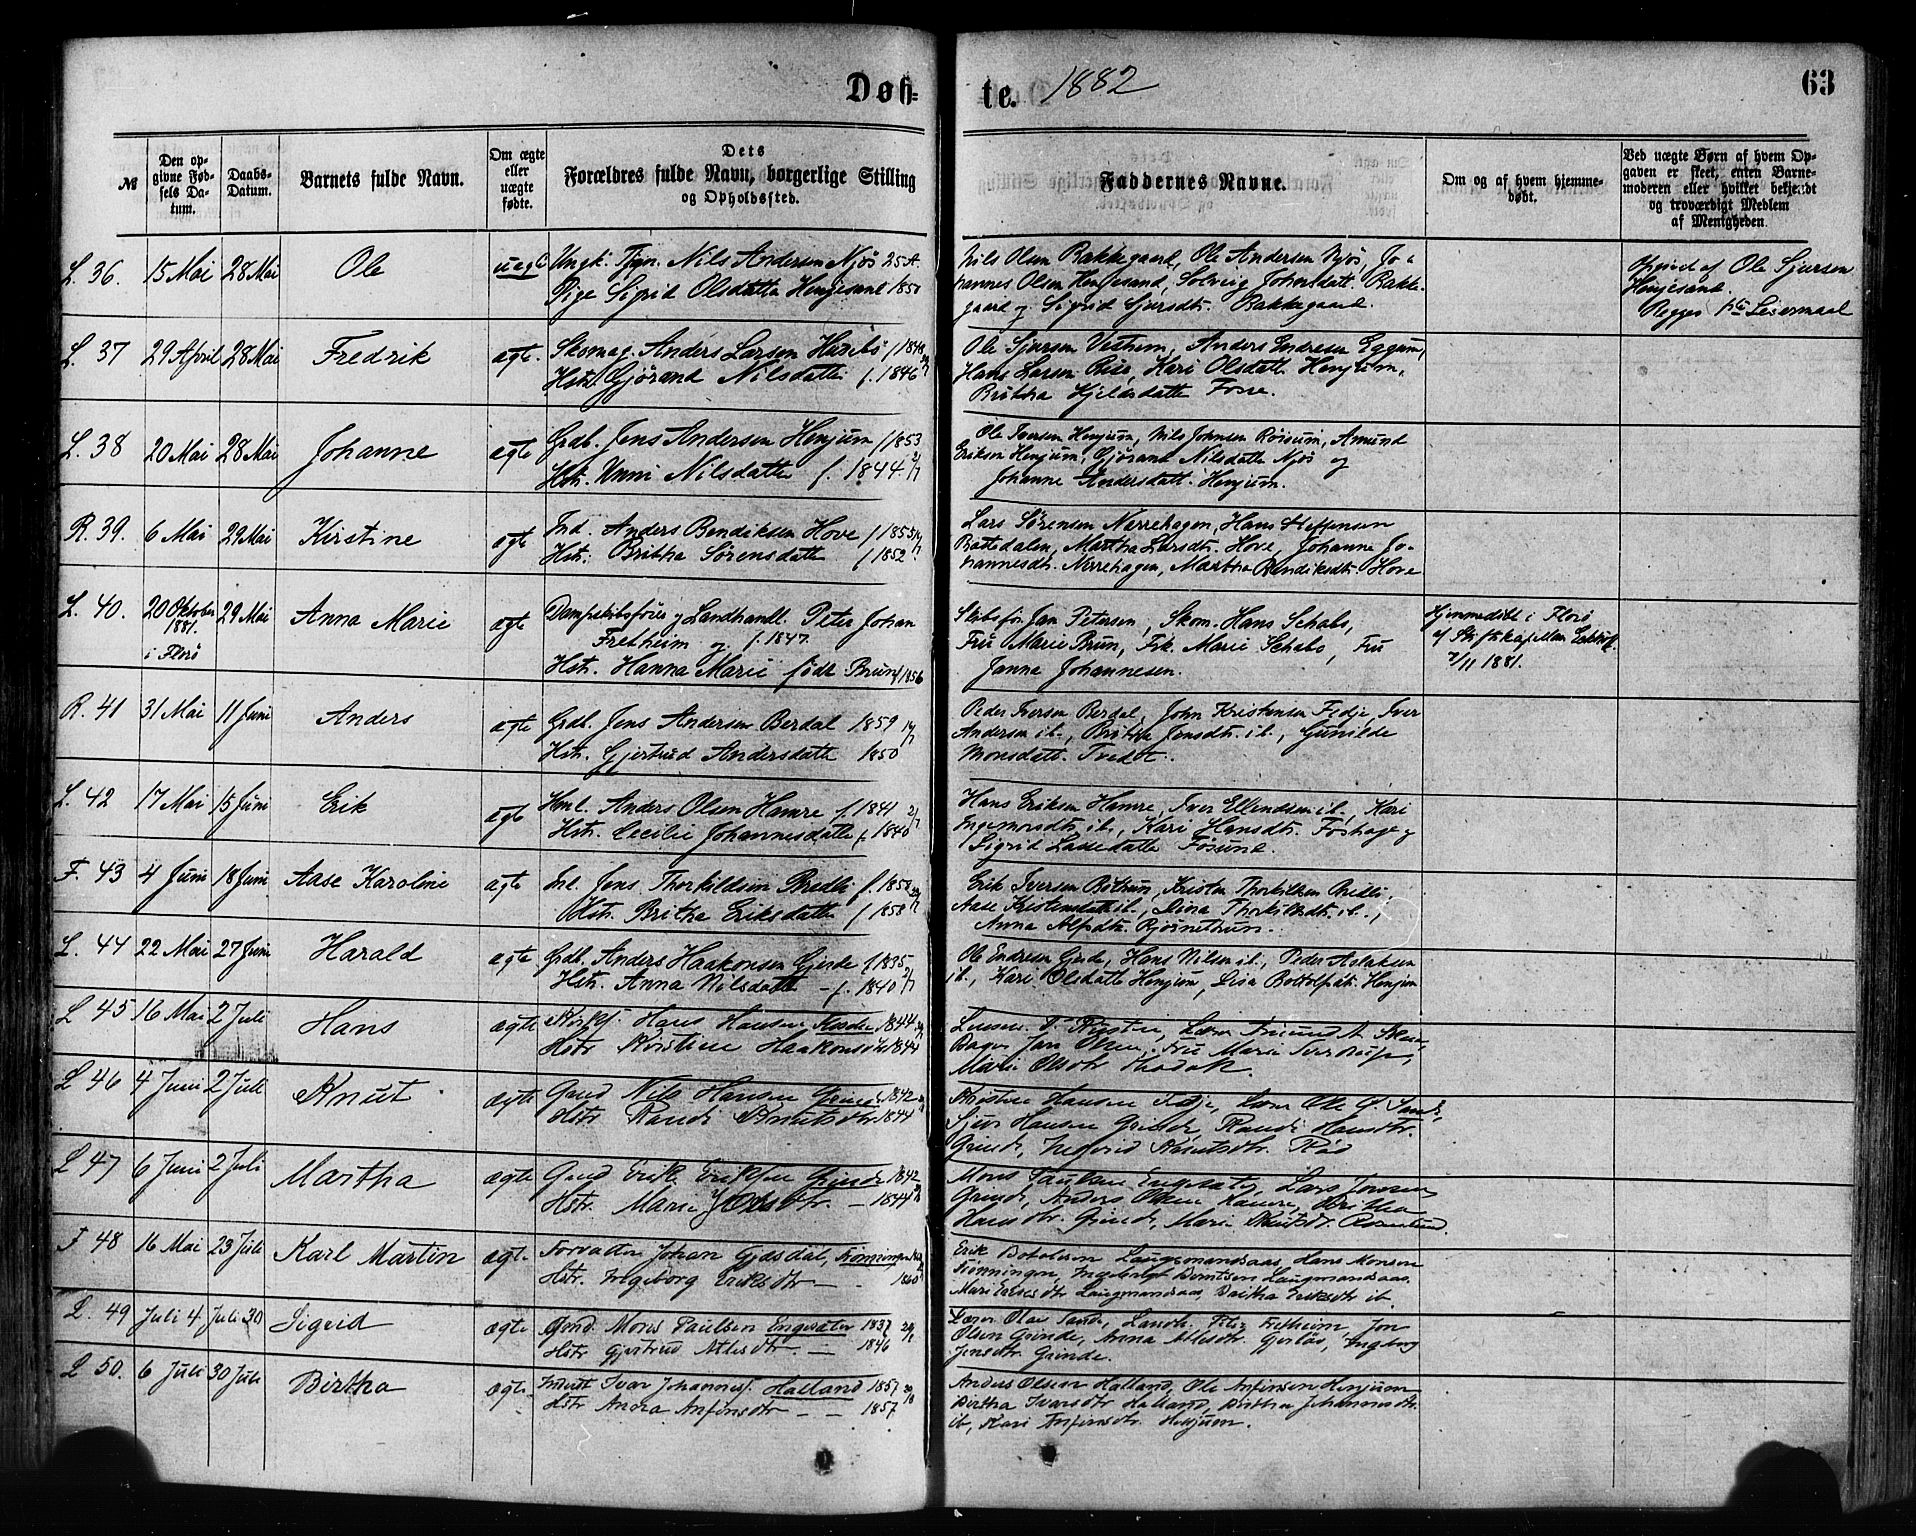 Døb=
te. 1882
63
№
Den op-
givne Fød-
sels Da-
tum.
Daabs-
Datum.
Barnets fulde Navn.
Om ægte
eller
uægte
fødte.
Dets
Forældres fulde Navn, borgerlige Stilling
og Opholdssted.
Faddernes Navne.
Om og af hvem hjemme-
døbt.
Ved uægte Børn af hvem Op-
gaven er skeet, enten Barne-
moderen eller hvilket bekjendt
og troværdigt Medlem
af Menigheden.
L. 36. 15 Mai 28 Mai Ole uegt Ungk. Nils Andersen Njøs 25 A.
Pige Sigrid Olsdatter Henjesand 1850
Nils Olsen Bakkegaard, Ole Andersen Njøs, Jo-
hannes Olsen Henjesand, Solveig Johnsdatt. Bakke-
gaard og Sigrid Sjursdt. Bakkegaard.
Opgivet af Ole Sjursen
Henjesand.
Begges 1ste Leiermaal
L. 37 29 April 28 Mai Fredrik egte. Skomag. Anders Larsen Husebø f 1848
Hst. Gjørond Nilsdatter f. 1846
Ole Sjursen Vestrum, Anders Endresen Eggum,
Hans Larsen, Kari Olsdatt. Henjum,
Britha Kjeldsdatter Fosse.
L. 38 20 Mai 28 Mai Johanne egte Grdb. Jens Andersen Henjum f 1853
Hst. Unni Nilsdatter f. 1844
Ole Iversen Henjum, Nils Johnsen Røisum, Amund
Eriksen Henjum, Gjørond Nilsdatter Njøs og
Johanne Andersdatt. Henjum.
R. 39. 6 Mai 29 Mai Kirstine egte Ind. Anders Bendiksen Hove f 1855
Hst. Britha Sørensdatter f 1852.
Lars Sørensen Nerrehagen, Hans Steffensen
Bostedalen, Martha Larsdt. Hove, Johanne Jo-
hannesdt. Nerrehagen, Martha Bendiksdt. Hove
L. 40. 20 Oktober 29 Mai Anna Marie egte
1881.
i Florø
Dampskibsfører og Landhandl. Peter Johan
Fretheim og f. 1847.
Hst. Hanna Marie født Brun f 1856
Skibsfør. Jan Petersen, Skom. Hans Schabo,
Fru Marie Brun, Frk. Marie Schabo, Fru
Janna Johannesen.
Hjemmedøbt i Florø
af Stiftskapellan
7/11 1881.
R. 41 31 Mai 11 Juni Anders egte Grdb. Jens Andersen Berdal f. 1859
Hst. Gjertrud Andersdatter 1850
Peder Iversen Berdal, John Kristensen Fedje, Iver
Andersen ib., Britha Jensdt. ib., Gunilde
Monsdatt. Tvedt.
L. 42 17 Mai 15 Juni Erik egte Hml. Anders Olsen Hamre f. 1841
Hst. Cecilie Johannesdatter f. 1840
Hans Eriksen Hamre, Iver Ellendsen ib., Kari
Ingemorsdt. ib., Kari Hansdt. og
Sigrid Lassedatter Føsund.
F. 43 4 Juni 18 Juni Aase Karoline egte Inl. Jens Thorkildsen f. 1858
Hst. Britha Eriksdatter f 1858
Erik Iversen Bøtnun, Kristen Thorkildsen
Aase Kristensdatt. ib., Dina Thorkildsdt. ib.,
Anna Alfsdt. Bjørnetun.
L. 44 22 Mai 27 Juni Harald egte Grdb. Anders Haakonsen Gjerde f 1835
Hst. Anna Nilsdatter - f. 1840
Ole Endresen Gjerde, Hans Nilsen ib., Peder Aslaksen
ib., Kari Olsdatter Henjum, Lisa Bottolfsdt. Henjum
L 45 16 Mai 2 Juli Hans ægte Hans Hansen 1844
Hst. Kirstine Haakonsdtr 1844
Lars Amund A.
Jan Olsen. Fru Marie
Marie Olsdtr
L 46 4 Juni 2 Juli Knut ægte Gaud Nils Hansen Grinde 1842
Hstr Randi Knutsdtr 1844
Kristen Hansen Fedje, Lærer Ole O. Sande,
Sjur Hansen Grinde Randi Hansdtr.
Grinde, Ingerid Knutsdtr.
L 47 6 Juni 2 Juli Martha ægte Gaud Erik Eriksen Grinde 1842
Hstr Marie Olsdtr. — 1844
Mons Paulsen Engesæter, Lars Jensen
Grinde, Anders Olsen Hamre, Britha
Hansdtr. Grinde, Marie Knutsdtr.
F 48 16 Mai 23 Juli Karl Martin ægte. Forvalter Johan Gjesdal, Frønningen
Hstr. Ingeborg Eriksdtr — 1860
Erik Botolvsen Laugmandsaas, Hans Monsen
Frønningen, Ingebrigt Laugmandsaas
Mari Eriksdtr Laugmandsaas, Eriksdtr ib
L. 49 Juli 4. Juli 30 Sigrid ægte Gaud. Mons Paulsen Engesæter 1837
Hstr Gjertrud Atlesdtr. — 1846
Lærer Olav Sande, Landh. Fretheim, Jon
Olsen Grinde, Anna Atlesdtr. Ingeborg
Jensdtr. Grinde.
L 50. 6 Juli 30 Juli Birtha ægte. Inderst Ivar Johanness. Halland 1857
Hstr Anna Anfinsdtr — — 1857
Anders Olsen Halland, Ole Anfinsen Henjum
Birtha Ivarsdtr Halland, Birtha Johannesdtr.
ib, Kari Anfinsdtr. Henjum.